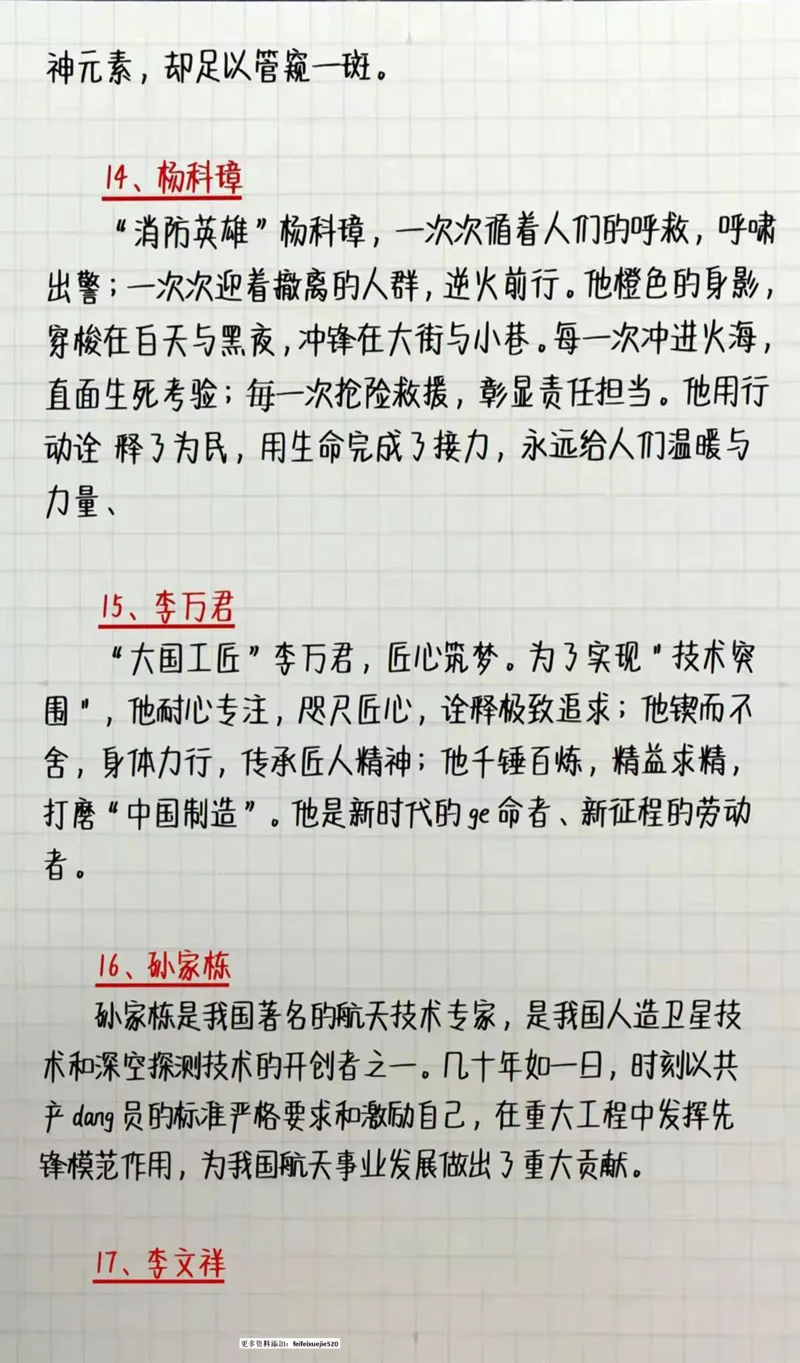 神元素，却足以管窥一斑。
14、杨科璋
“消防英雄”杨科璋，一次次循着人们的呼救，呼啸
出警；一次次迎着撤离的人群，逆火前行。他橙色的身影，
穿梭在白天与黑夜，冲锋在大街与小巷。每一次冲进火海，
直面生死考验；每一次抢险救援，彰显责任担当。他用行
动诠 释了为民，用生命完成了接力，永远给人们温暖与
力量、
15、李万君
“大国工匠”李万君，匠心筑梦。为了实现"技术突
围"，他耐心专注，咫尺匠心，诠释极致追求；他锲而不
舍，身体力行，传承匠人精神；他千锤百炼，精益求精，
打磨“中国制造”。他是新时代的ge命者、新征程的劳动
者。
16、孙家栋
孙家栋是我国著名的航天技术专家，是我国人造卫星技
术和深空探测技术的开创者之一。几十年如一日，时刻以共
产dang员的标准严格要求和激励自己，在重大工程中发挥先
锋模范作用，为我国航天事业发展做出了重大贡献。
17、李文祥
更多资料添加：feifeixuejie520